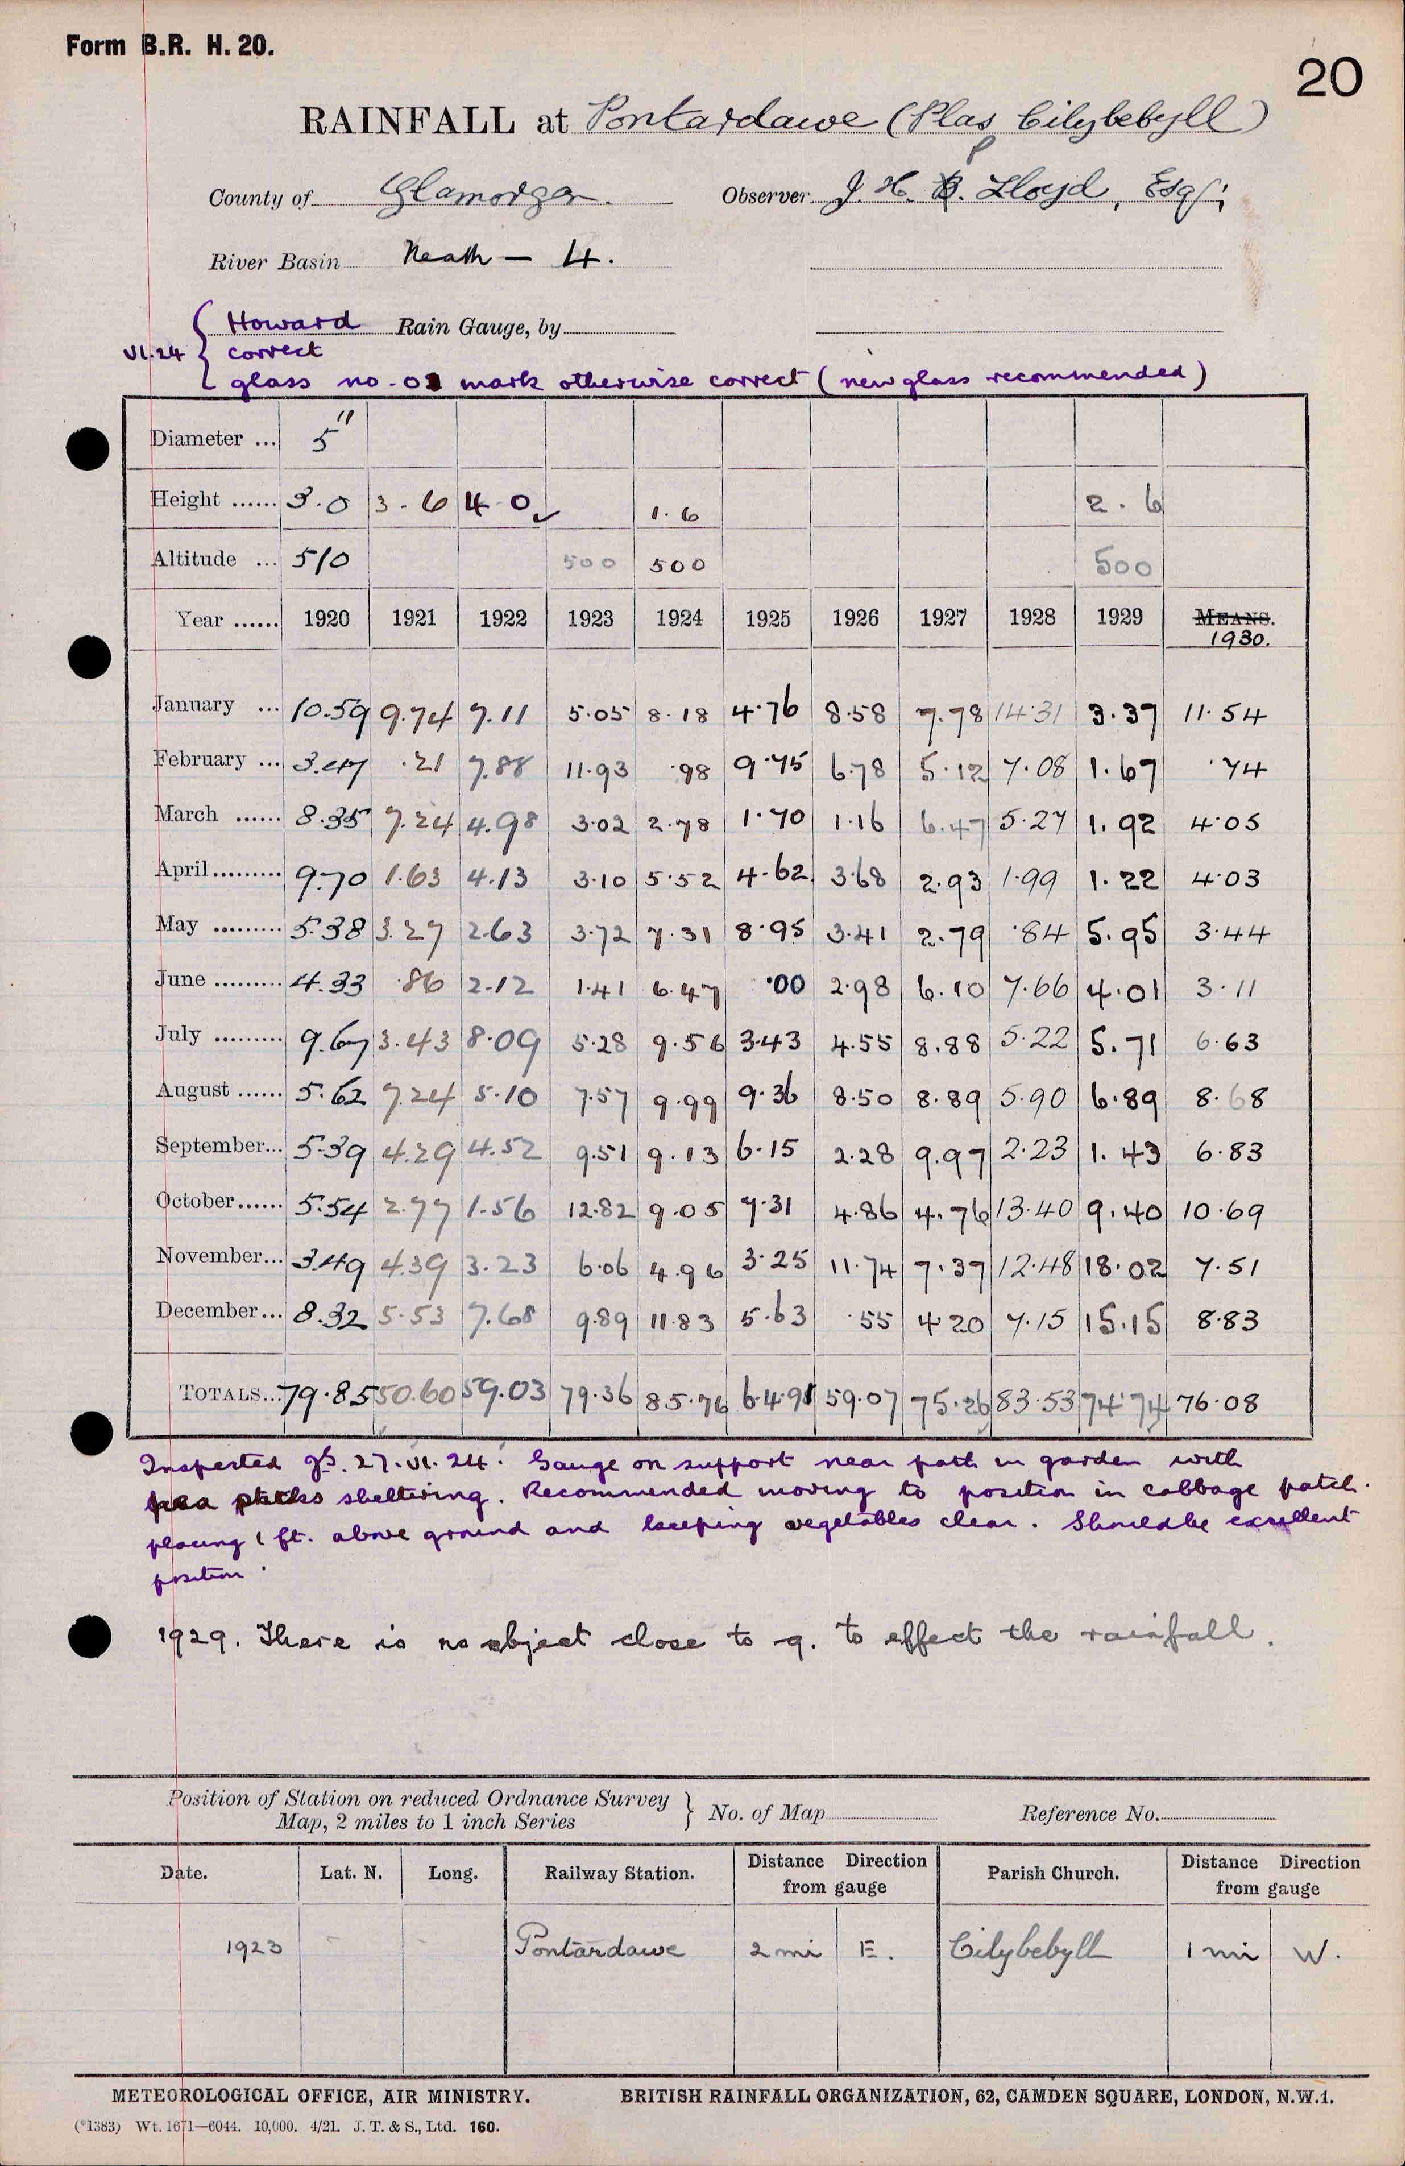 Form B.R. H. 20.
20
RAINFALL at Pontardawe (Plas Cilybebyll)
P
County of Glamorgan. Observer J. H. B. Lloyd, Esq;
River Basin Neath — 4.
Howard Rain Gauge, by
VI.24 correct
glass no .01 mark otherwise correct (new glass recommended)
Diameter ... 5"
Height ...... 3.0 3.6 4.0 1.6 2.6
Altitude ... 510 500 500 500
Year ...... 1920 1921 1922 1923 1924 1925 1926 1927 1928 1929 MEANS.
1930.
January ... 10.59 9.74 7.11 5.05 8.18 4.76 8.58 7.78 14.31 3.37 11.54
February ... 3.47 .21 7.88 11.93 .98 9.75 6.78 5.12 7.08 1.67 .74
March ...... 8.35 7.24 4.98 3.02 2.78 1.70 1.16 6.47 5.27 1.92 4.05
April ......... 9.70 1.63 4.13 3.10 5.52 4.62 3.68 2.93 1.99 1.22 4.03
May ......... 5.38 3.27 2.63 3.72 7.31 8.95 3.41 2.79 .84 5.95 3.44
June ......... 4.33 .86 2.12 1.41 6.47 .00 2.98 6.10 7.66 4.01 3.11
July ......... 9.67 3.43 8.09 5.28 9.56 3.43 4.55 8.88 5.22 5.71 6.63
August ...... 5.62 7.24 5.10 7.57 9.99 9.36 8.50 8.89 5.90 6.89 8.68
September... 5.39 4.29 4.52 9.51 9.13 6.15 2.28 9.97 2.23 1.43 6.83
October...... 5.54 2.77 1.56 12.82 9.05 7.31 4.86 4.76 13.40 9.40 10.69
November... 3.49 4.39 3.23 6.06 4.96 3.25 11.74 7.37 12.48 18.02 7.51
December... 8.32 5.53 7.68 9.89 11.83 5.63 .55 4.20 7.15 15.15 8.83
TOTALS... 79.85 50.60 59.03 79.36 85.76 64.91 59.07 75.26 83.53 74.74 76.08
Inspected 27.VI.24. Gauge on support near path in garden with
sheltering. Recommended moving to position in cabbage patch.
placing 1 ft. above ground and keeping vegetables clear. Should be excellent
position.
1929. There is no object close to g. to effect the rainfall.
Position of Station on reduced Ordnance Survey
Map, 2 miles to 1 inch Series } No. of Map Reference No.
Date. Lat. N. Long. Railway Station. Distance Direction from gauge Parish Church. Distance Direction from gauge
1923 - - Pontardawe 2 mi E. Cilybebyll 1 mi W.
METEOROLOGICAL OFFICE, AIR MINISTRY. BRITISH RAINFALL ORGANIZATION, 62, CAMDEN SQUARE, LONDON, N.W.1.
(*1383) Wt. 1671—6044. 10,000. 4/21. J. T. & S., Ltd. 160.